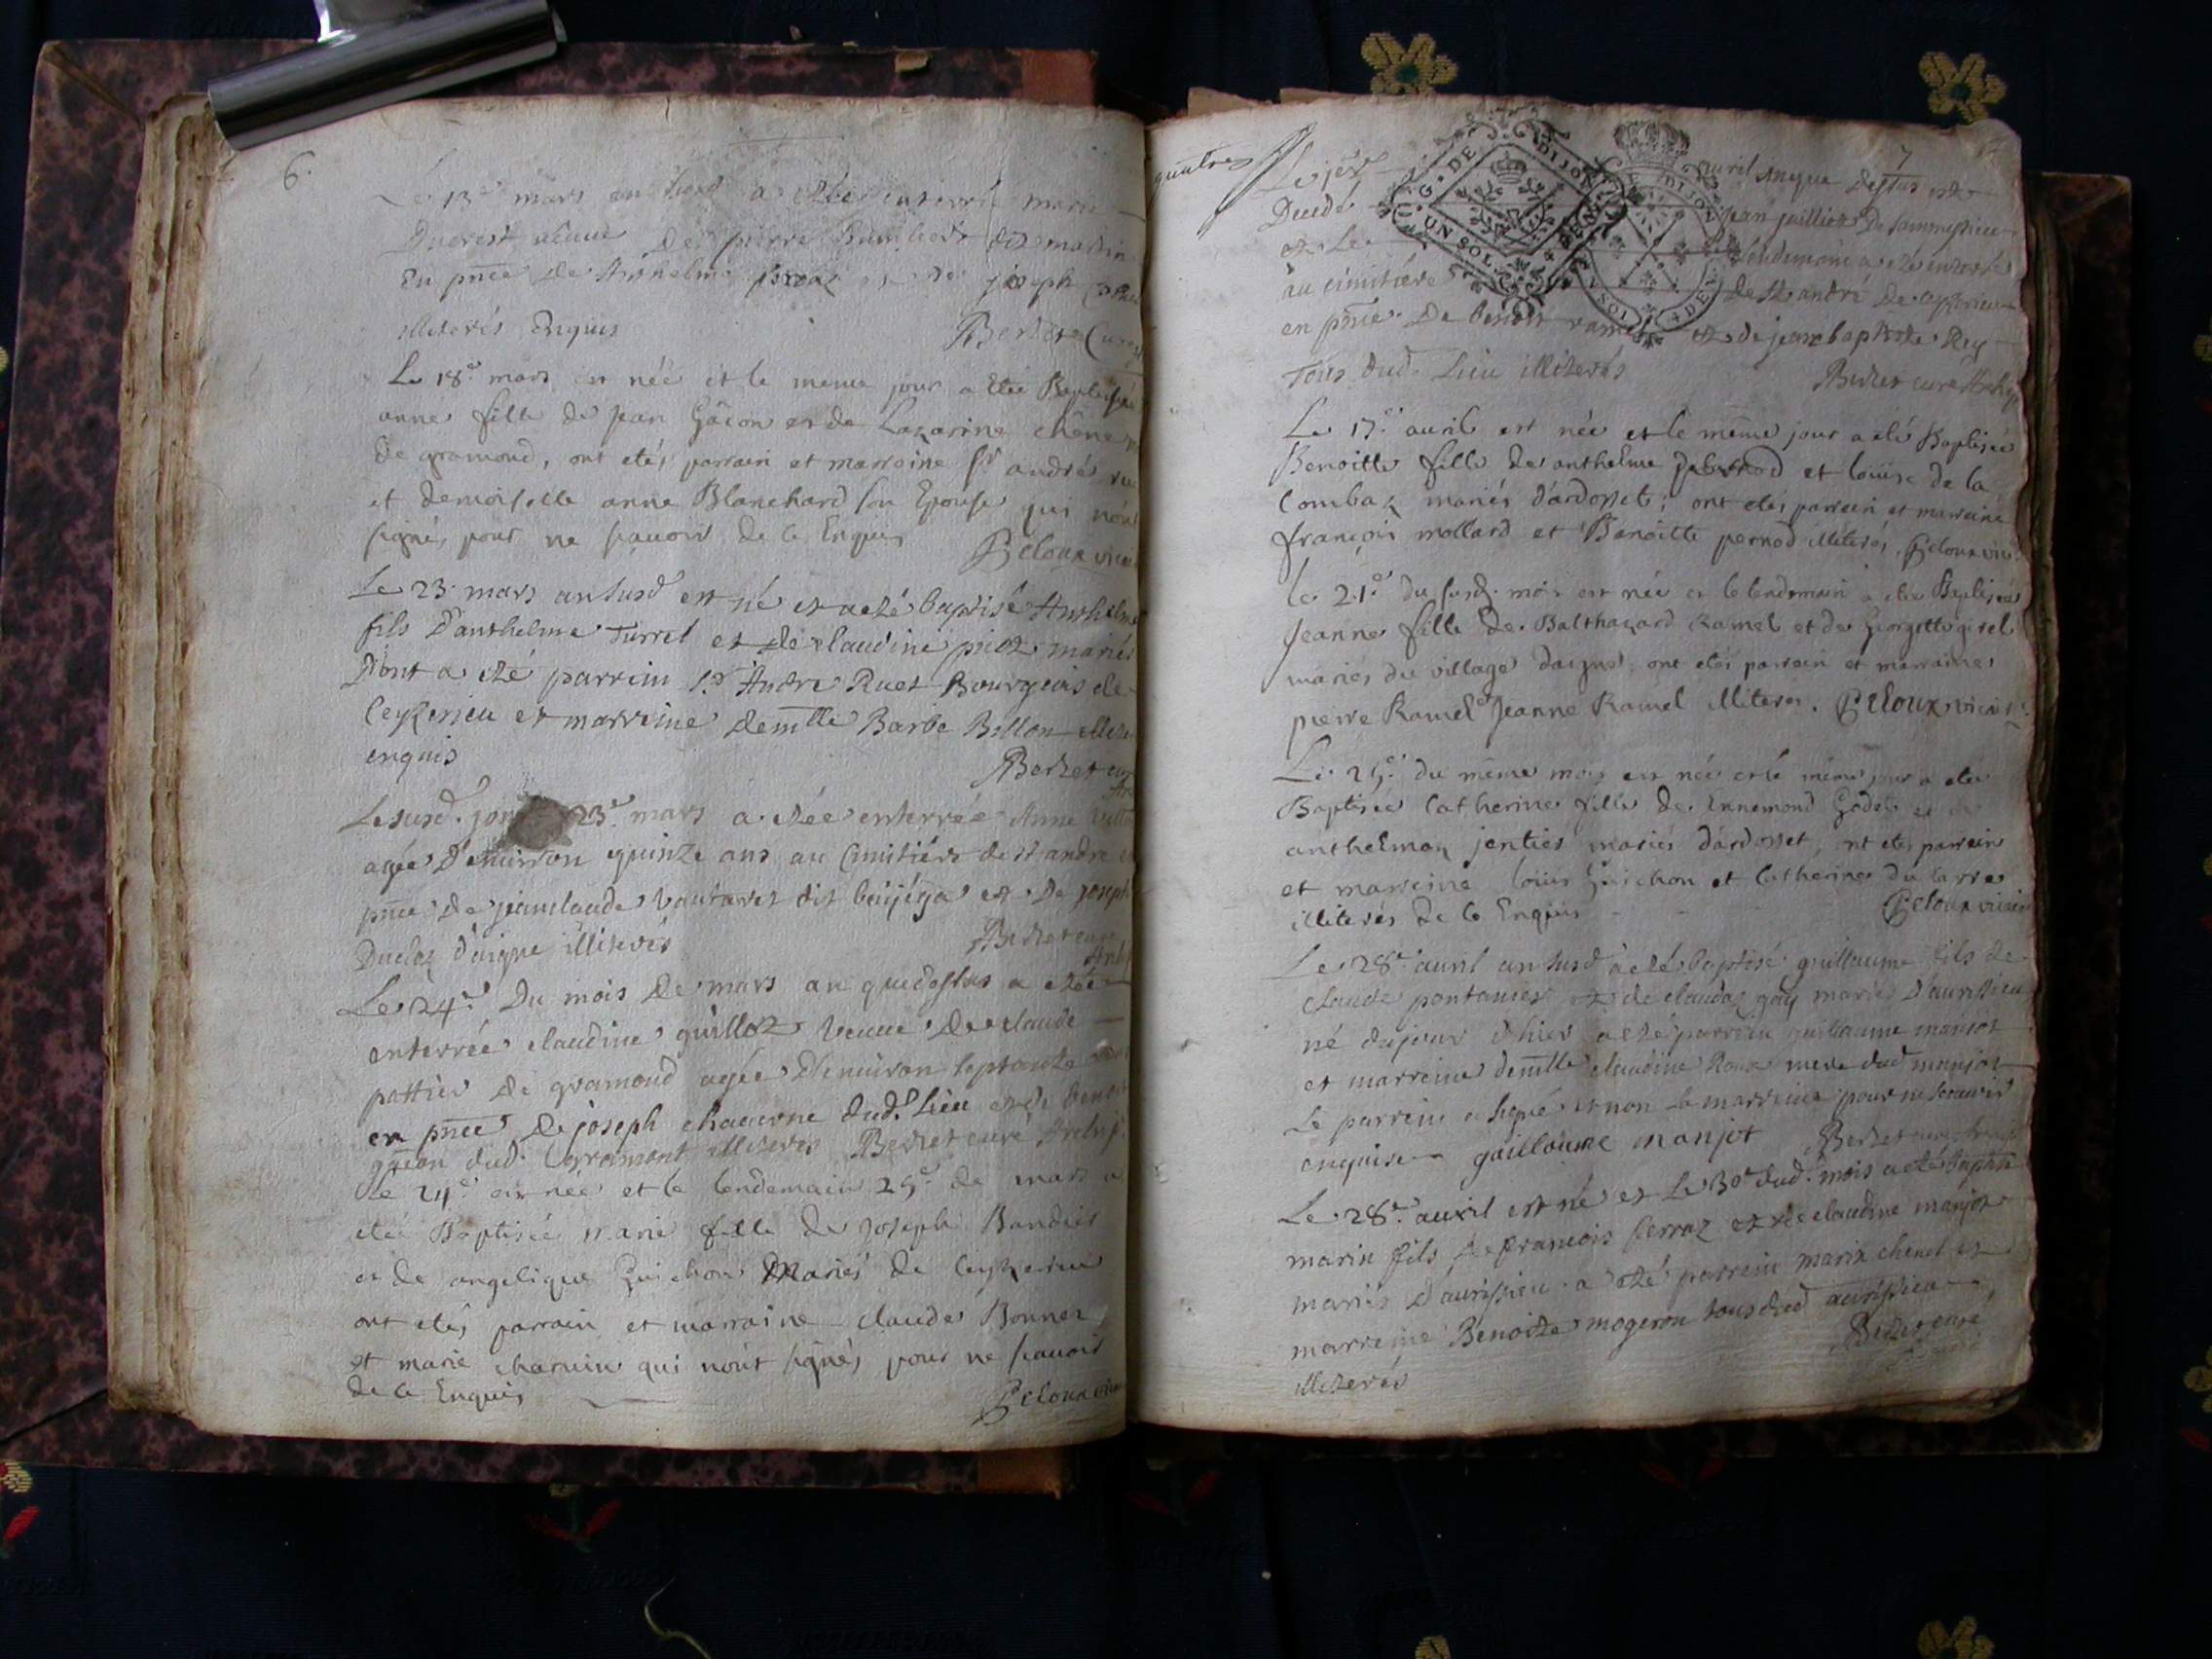 6.
Le 13e mars an susd a etée enterrée marie
Ducrest veuve de pierre Humbert dit martin
En pnce de Anthelme et de joseph
illiterés Enquis Berlet Curé
Le 18e mars est née et le meme jour a etée Baptisée
anne fille de jean Gâcon et de Lazarine chêne
de gramond, ont etés parrain et marraine sr andré
et demoiselle anne Blanchard son Epouse qui nont
signé, pour ne sçavoir de ce Enquis Peloux vicaire
Le 23 mars an susd est né et a eté baptisé Anthelme
fils D'anthelme Turrel et de claudine mariés
Dont a eté parrein sr Andre Ruet Bourgeois de
Ceyzerieu et marreine demlle Barbe Billon
enquis Berlet curé
Le susd. jour 23e mars a etée enterrée Anne
agée D'environ quinze ans au Cimitiére de st andre
pnce de jeanclaude vautaret dit et De joseph
Ducloz d'aigne illiterés Berlet curé
Le 24e Du mois de mars an quedessus a etée
enterrée claudine guilloz veuve De claude
pottier de gramond agée d'environ septante
en pnce De joseph chaverne dud. lieu et de benoit
gâcon dud. Gramont illiterés Berlet curé Archip.
Le 24e est née et le lendemain 25e de mars a
etée Baptisée marie fille de joseph Bandier
et de angelique Guichon Mariés de Ceyzerieu
ont etés parrain et marraine claude Bonnet
et marie charvin qui nont signés pour ne sçavoir
de ce Enquis Peloux vicaire
quatre
7
Le jer avril anque dessus est
Decedé jean juilliot De
et Le lendemain a eté enterré
au cimitiére De St andré De
en pnce. De benoit ramel et de jean baptiste Rey
Tous dud. Lieu illiterés Berlet curé Archip
G. DE DIJON
UN SOL
Le 17e avril est née et le même jour a eté Baptisée
Benoitte fille de anthelme et loüise de la
Combaz mariés d'ardosset; ont etés parrein et marraine
françois mollard et Benoitte pernod illiterés, Peloux vic.
le 21e du susd. mois est née et le lendemain a etée Baptisée
Jeanne fille de Balthazard Ramel et de Georgette
mariés du village daignoz, ont etés parrain et marraine
pierre Ramel et Jeanne Ramel illiterés. Peloux vicaire
Le 25e du même mois est née et le même jour a etée
Baptisée Catherine fille de Ennemond Godet et de
anthelmaz jentier mariés d'ardosset, ont etés parrein
et marreine loüis Guichon et Catherine du
illiterés de ce Enquis Peloux vicaire
Le 28e avril an susd a eté baptisé guillaume fils de
claude pontanier et de claudaz gay mariés D'aurissieu
né du jour d'hier a eté parrein guillaume manjot
et marreine demlle claudine Roux mere dud manjot
Le parrein a signé et non la marreine pour ne scavoir
enquise guillaume manjot Berlet curé
Le 28e avril est né et Le 30e dud. mois a eté baptisé
marin fils de françois ferraz et de claudine manjot
mariés D'aurissieu a eté parrein marin chenet et
marreine Benoitte mogeron tous dud aurissieu
illiterés Berlet curé